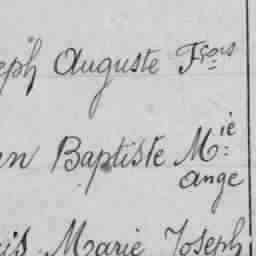 eph Auguste Fçois
en Baptiste Mie
ange
is Marie Joseph